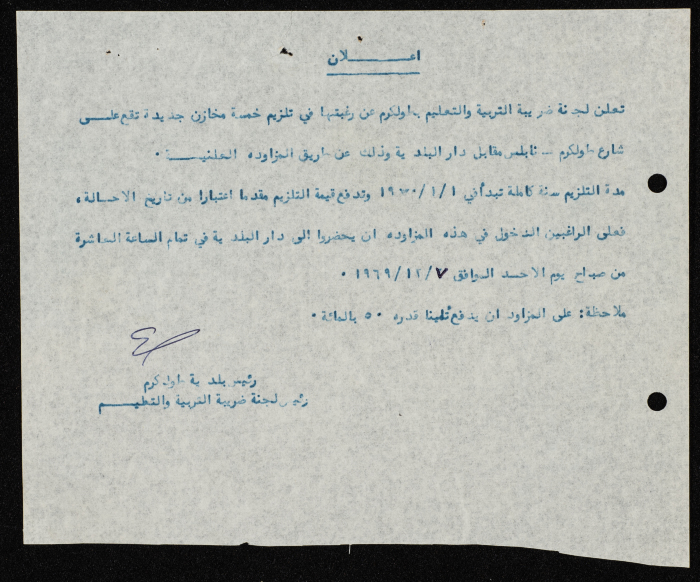 اعـــــــلان
تعلن لجنة ضريبة التربية والتعليم بطولكرم عن رغبتها في تلزيم خمسة مخازن جديدة تقع علـــى
شارع طولكرم ـ نابلس مقابل دار البلدية وذلك عن طريق المزاوده العلنيـــة ٠
مدة التلزيم سنة كاملة تبدأ في ١/١/١٩٧٠ وتدفع قيمة التلزيم مقدما اعتبارا من تاريخ الاحـالة،
فعلى الراغبين الدخول في هذه المزاوده ان يحضروا الى دار البلدية في تمام الساعة العاشرة
من صباح يوم الاحـد الموافق ٧/١٢/١٩٦٩ ٠
ملاحظة: على المزاود ان يدفع تأمينا قدره ٥٠ بالمائة ٠
رئيس بلدية طولكرم
رئيس لجنة ضريبة التربية والتعليـــم